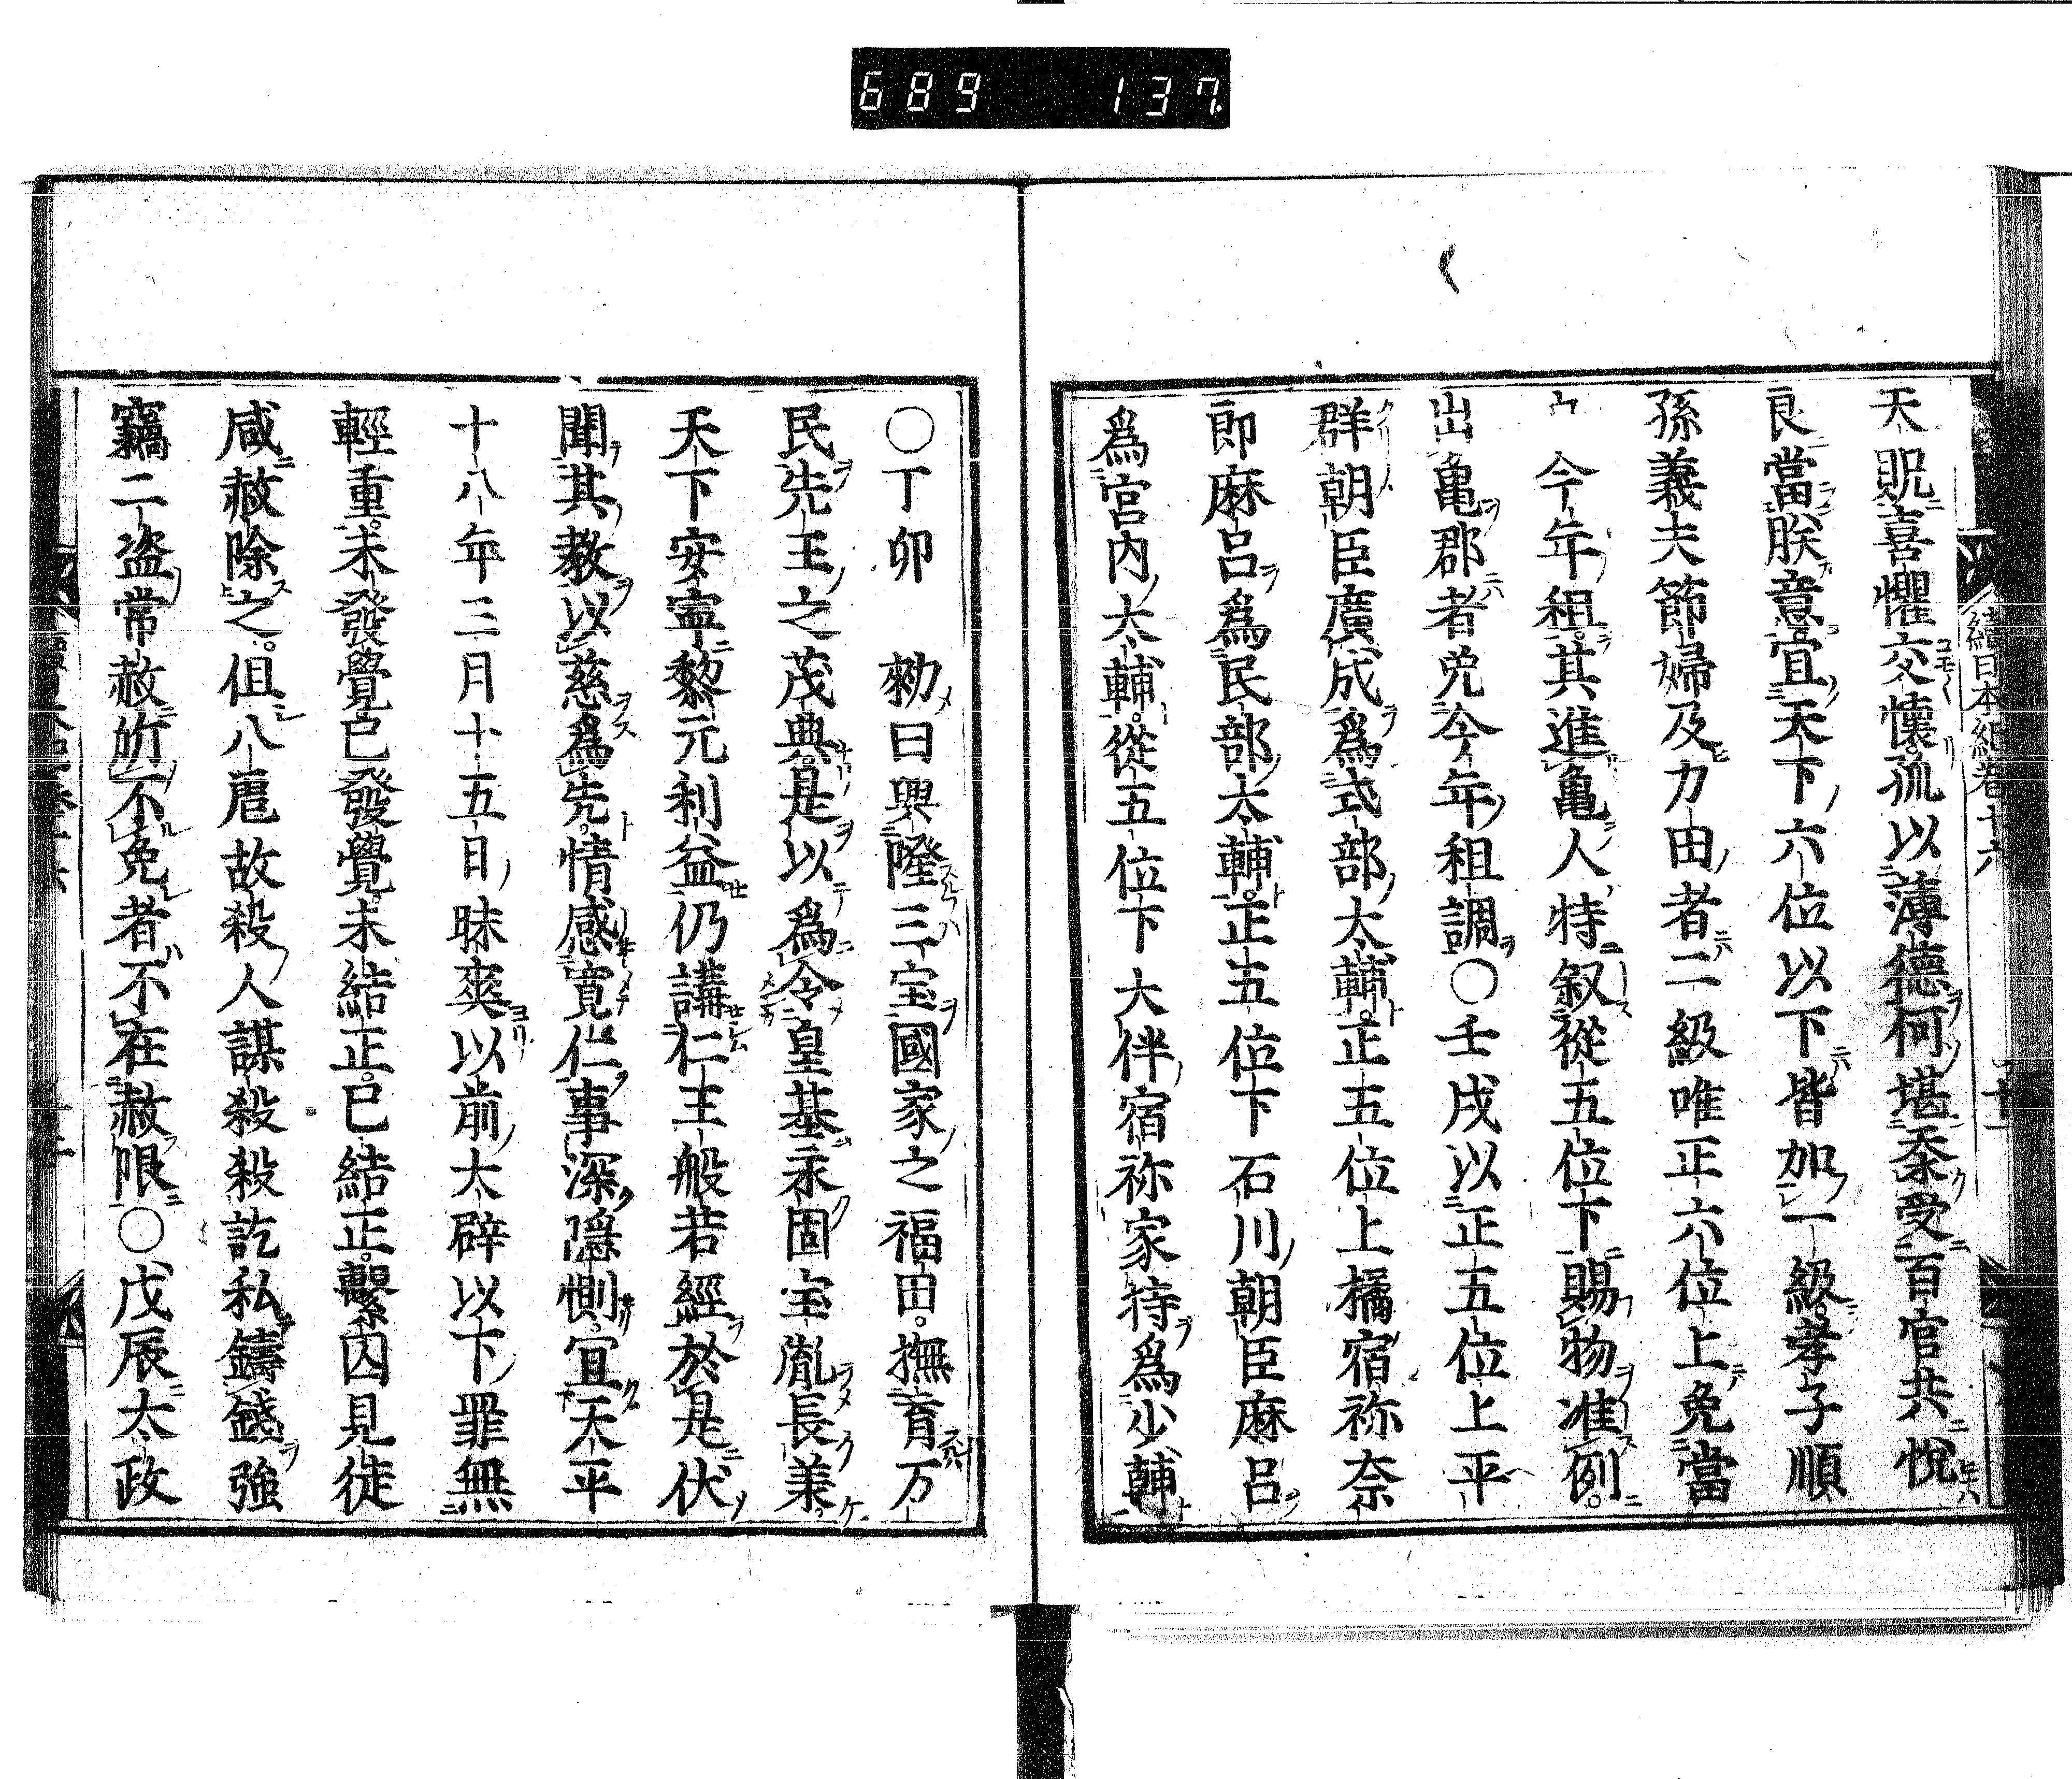 689 137
續日本紀卷十六
天貺喜懼交懷孤以薄德何堪忝受百官共悅
良當朕意宜天下六位以下皆加一級孝子順
孫義夫節婦及力田者二級唯正六位上免當
今年租其進亀人特叙從五位下賜物准例
出亀郡者免今年租調〇壬戌以正五位上平
群朝臣廣成爲式部大輔正五位上橘宿祢奈
郎麻呂爲民部大輔正五位下石川朝臣麻呂
爲宮内大輔從五位下大伴宿祢家持爲少輔
〇丁卯 勅曰興隆三宝國家之福田撫育万
民先王之茂典是以爲令皇基永固宝胤長兼
天下安寧黎元利益仍講仁王般若經於是伏
聞其教以慈爲先情感寛仁事深隱惻宜天平
十八年三月十五日昧爽以前大辟以下罪無
輕重未發覺已發覺未結正已結正繫囚見徒
咸赦除之但八虐故殺人謀殺殺訖私鑄錢強
竊二盗常赦所不免者不在赦限〇戊辰太政